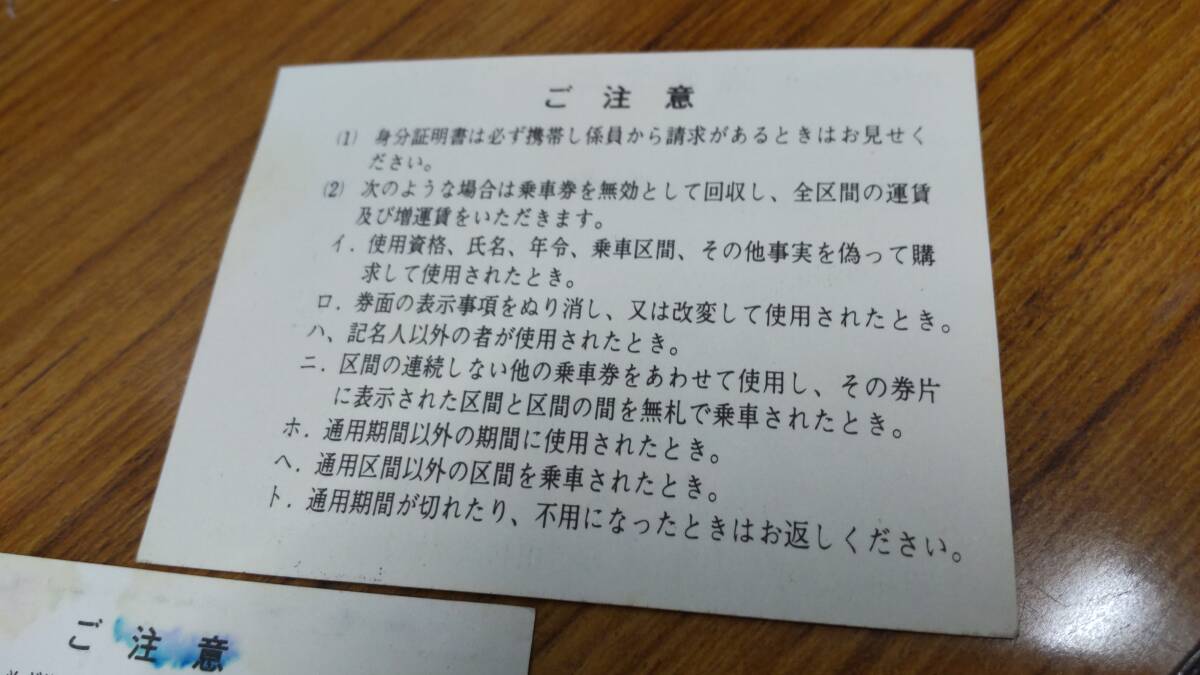 ご注意
(1) 身分証明書は必ず携帯し係員から請求があるときはお見せく
ださい。
(2) 次のような場合は乗車券を無効として回収し、全区間の運賃
及び増運賃をいただきます。
イ．使用資格、氏名、年令、乗車区間、その他事実を偽って購
求して使用されたとき。
ロ．券面の表示事項をぬり消し、又は改変して使用されたとき。
ハ、記名人以外の者が使用されたとき。
ニ．区間の連続しない他の乗車券をあわせて使用し、その券片
に表示された区間と区間の間を無札で乗車されたとき。
ホ．通用期間以外の期間に使用されたとき。
ヘ．通用区間以外の区間を乗車されたとき。
ト．通用期間が切れたり、不用になったときはお返しください。
ご注意